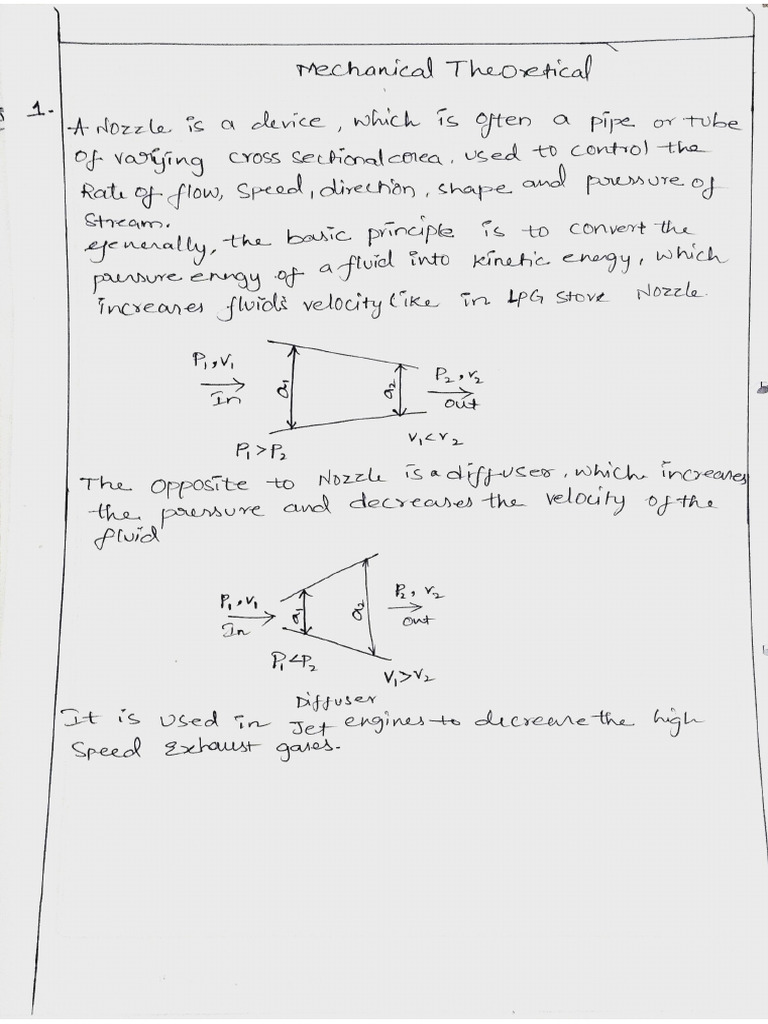 Mechanical Theoretical
1.
A Nozzle is a device, which is often a pipe or tube
of varying cross sectional area. used to control the
Rate of flow, speed, direction, shape and pressure of
stream.
generally, the basic principle is to convert the
pressure enrgy of a fluid into kinetic energy, which
increases fluids velocity like in LPG stove Nozzle.
P₁, V₁
In
a₁
a₂
P₂, V₂
out
P₁ > P₂
V₁ < V₂
The opposite to Nozzle is a diffuser, which increases
the pressure and decreases the velocity of the
fluid
P₁, V₁
In
a₁
a₂
P₂, V₂
out
P₁ < P₂
V₁ > V₂
Diffuser
It is used in Jet engines to decrease the high
speed Exhaust gases.